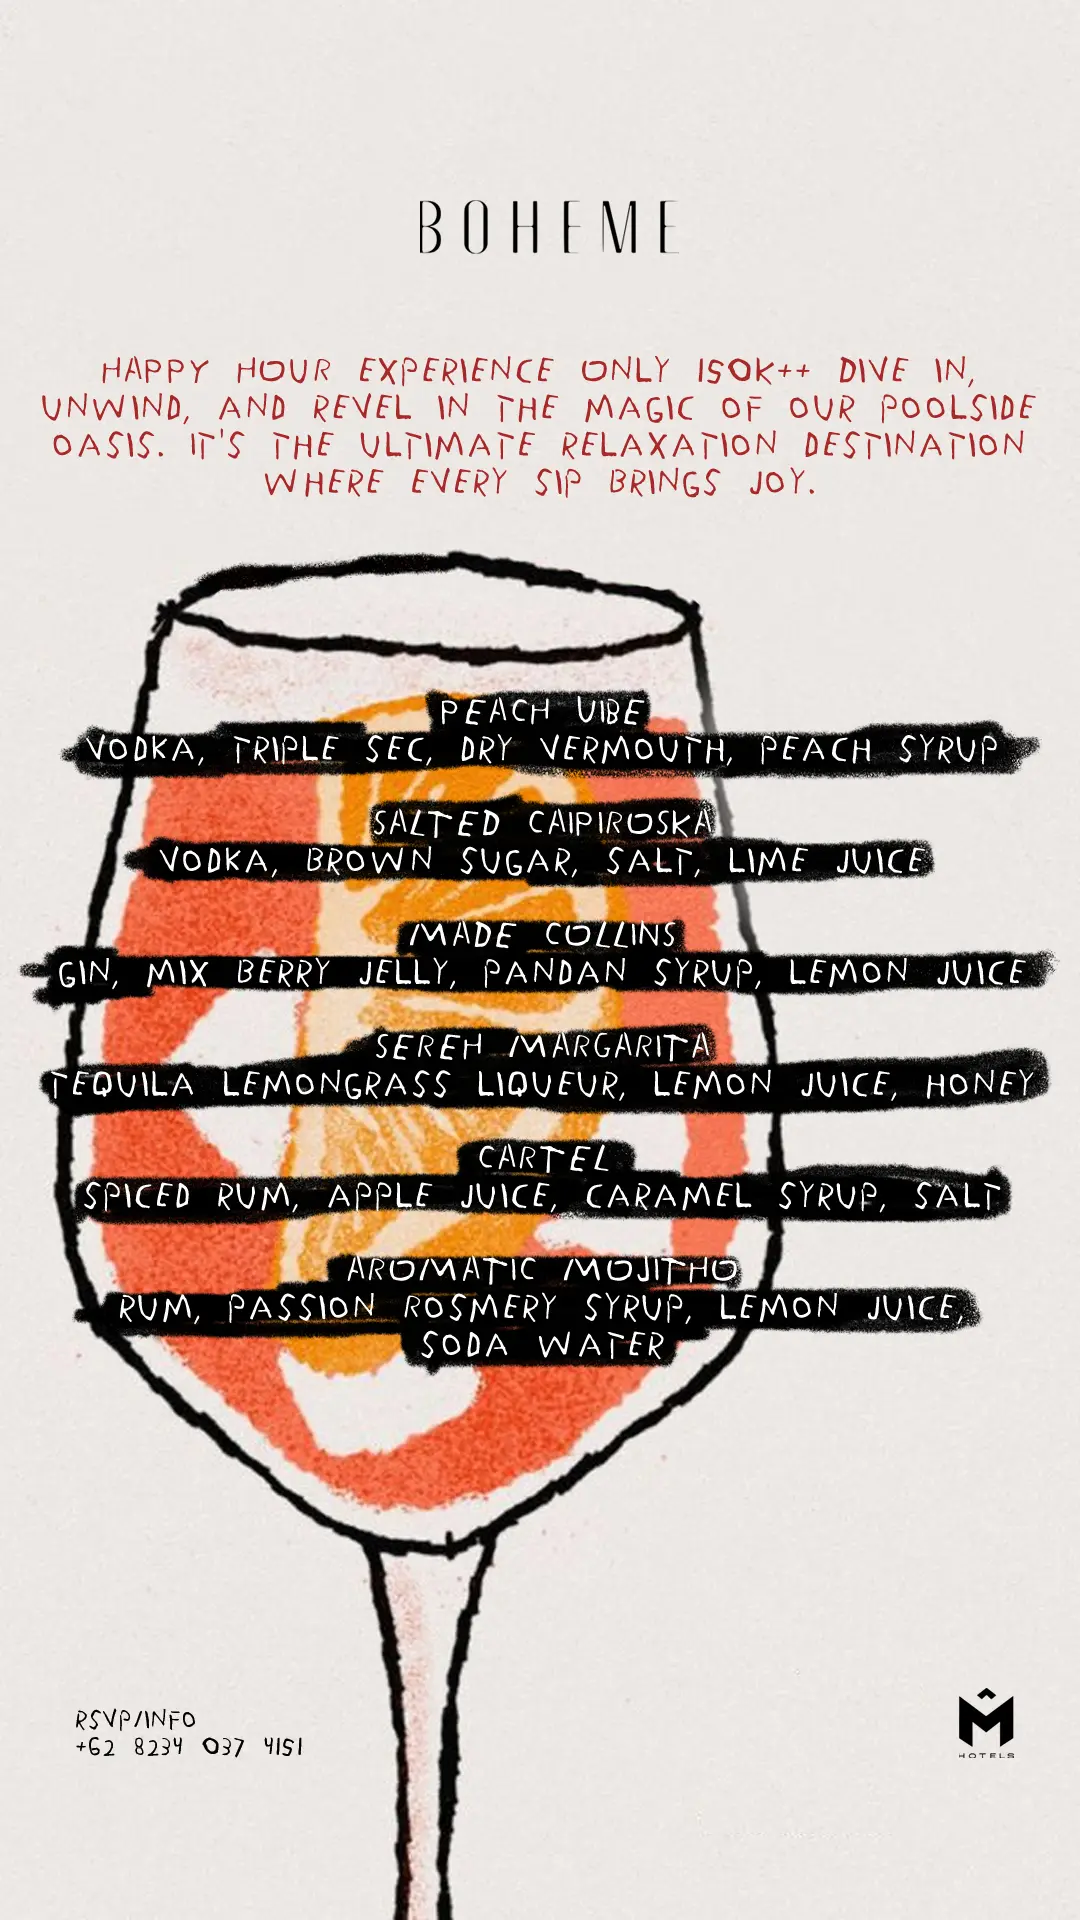 BOHEME
HAPPY HOUR EXPERIENCE ONLY 150K++ DIVE IN,
UNWIND, AND REVEL IN THE MAGIC OF OUR POOLSIDE
OASIS. IT'S THE ULTIMATE RELAXATION DESTINATION
WHERE EVERY SIP BRINGS JOY.
PEACH VIBE
VODKA, TRIPLE SEC, DRY VERMOUTH, PEACH SYRUP
SALTED CAIPIROSKA
VODKA, BROWN SUGAR, SALT, LIME JUICE
MADE COLLINS
GIN, MIX BERRY JELLY, PANDAN SYRUP, LEMON JUICE
SEREH MARGARITA
TEQUILA LEMONGRASS LIQUEUR, LEMON JUICE, HONEY
CARTEL
SPICED RUM, APPLE JUICE, CARAMEL SYRUP, SALT
AROMATIC MOJITHO
RUM, PASSION ROSMERY SYRUP, LEMON JUICE,
SODA WATER
RSVP/INFO
+62 8234 037 4151
M
HOTELS